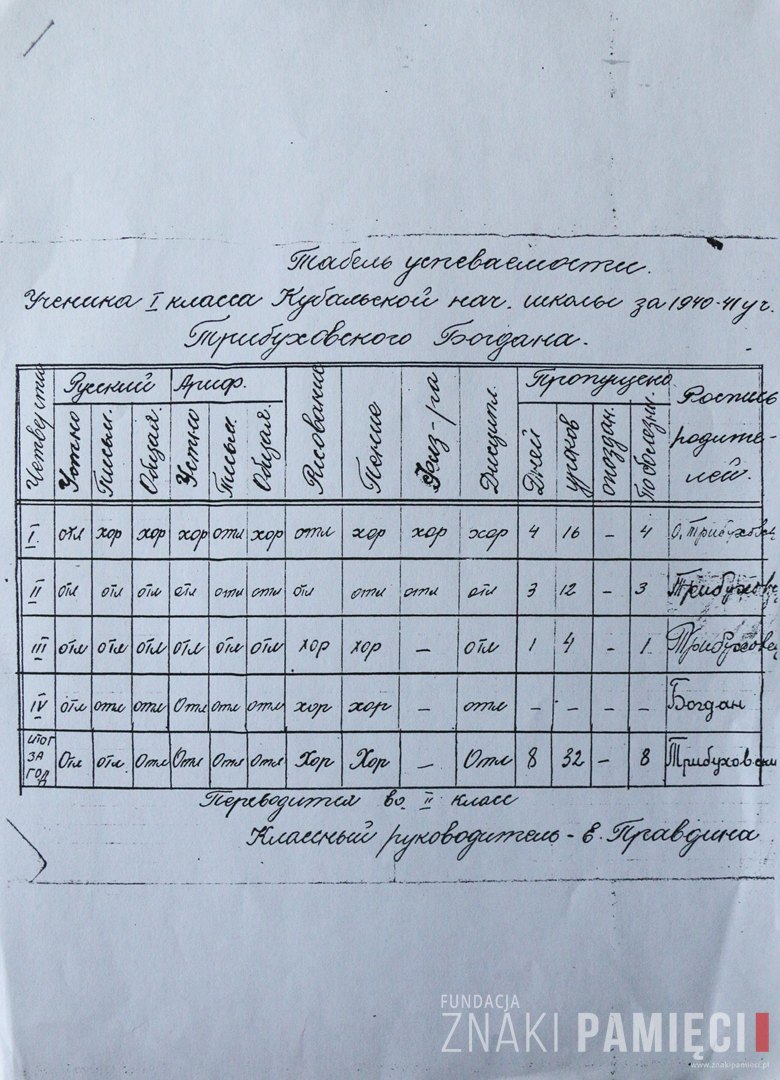 Табель успеваемости.
Ученика I класса Кубальской нач. школы за 1940-41 уч.
Трибуховского Богдана.
Четверти Русский Ариф. Рисование Пение Физ-ра Дисципл. Пропущено Роспись родите-лей.
Устно Письм. Общая. Устно Письм. Общая. Дней уроков опоздан. По болезни.
I. отл хор хор хор отл хор отл хор хор хор 4 16 – 4 О. Трибуховск
II отл отл отл отл отл отл отл отл отл отл 3 12 – 3 Трибуховс
III отл отл отл отл отл отл хор хор – отл 1 4 – 1 Трибуховс
IV отл отл отл Отл отл отл хор хор – отл – – – – Богдан
итог за год Отл отл. Отл Отл Отл Отл Хор Хор – Отл 8 32 – 8 Трибуховски
Переводится во II класс
Классный руководитель - Е. Правдина
FUNDACJA
ZNAKI PAMIĘCI
www.znakipamieci.pl